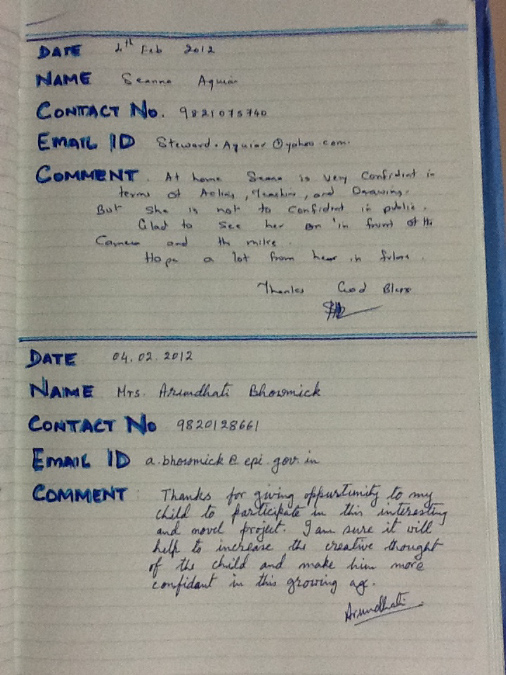 DATE 4th Feb 2012
NAME Seanna Aguiar
CONTACT No. 9821075740
EMAIL ID Steward.Aguiar@yahoo.com.
COMMENT. At home is very Confident in
terms of Acting, , and Drawing.
But she is not to Confident in public.
Glad to see her on 'in front of the
Camera and th mike.
Hope a lot from her in future.
Thanks God Bless
DATE 04.02.2012
NAME Mrs. Arundhati Bhowmick
CONTACT No 9820128661
EMAIL ID a.bhowmick@epi.gov.in
COMMENT: Thanks for giving oppurtunity to my
child to participate in this interesting
and novel project. I am sure it will
help to increase the creative thought
of the child and make him more
confidant in this growing age.
Arundhati